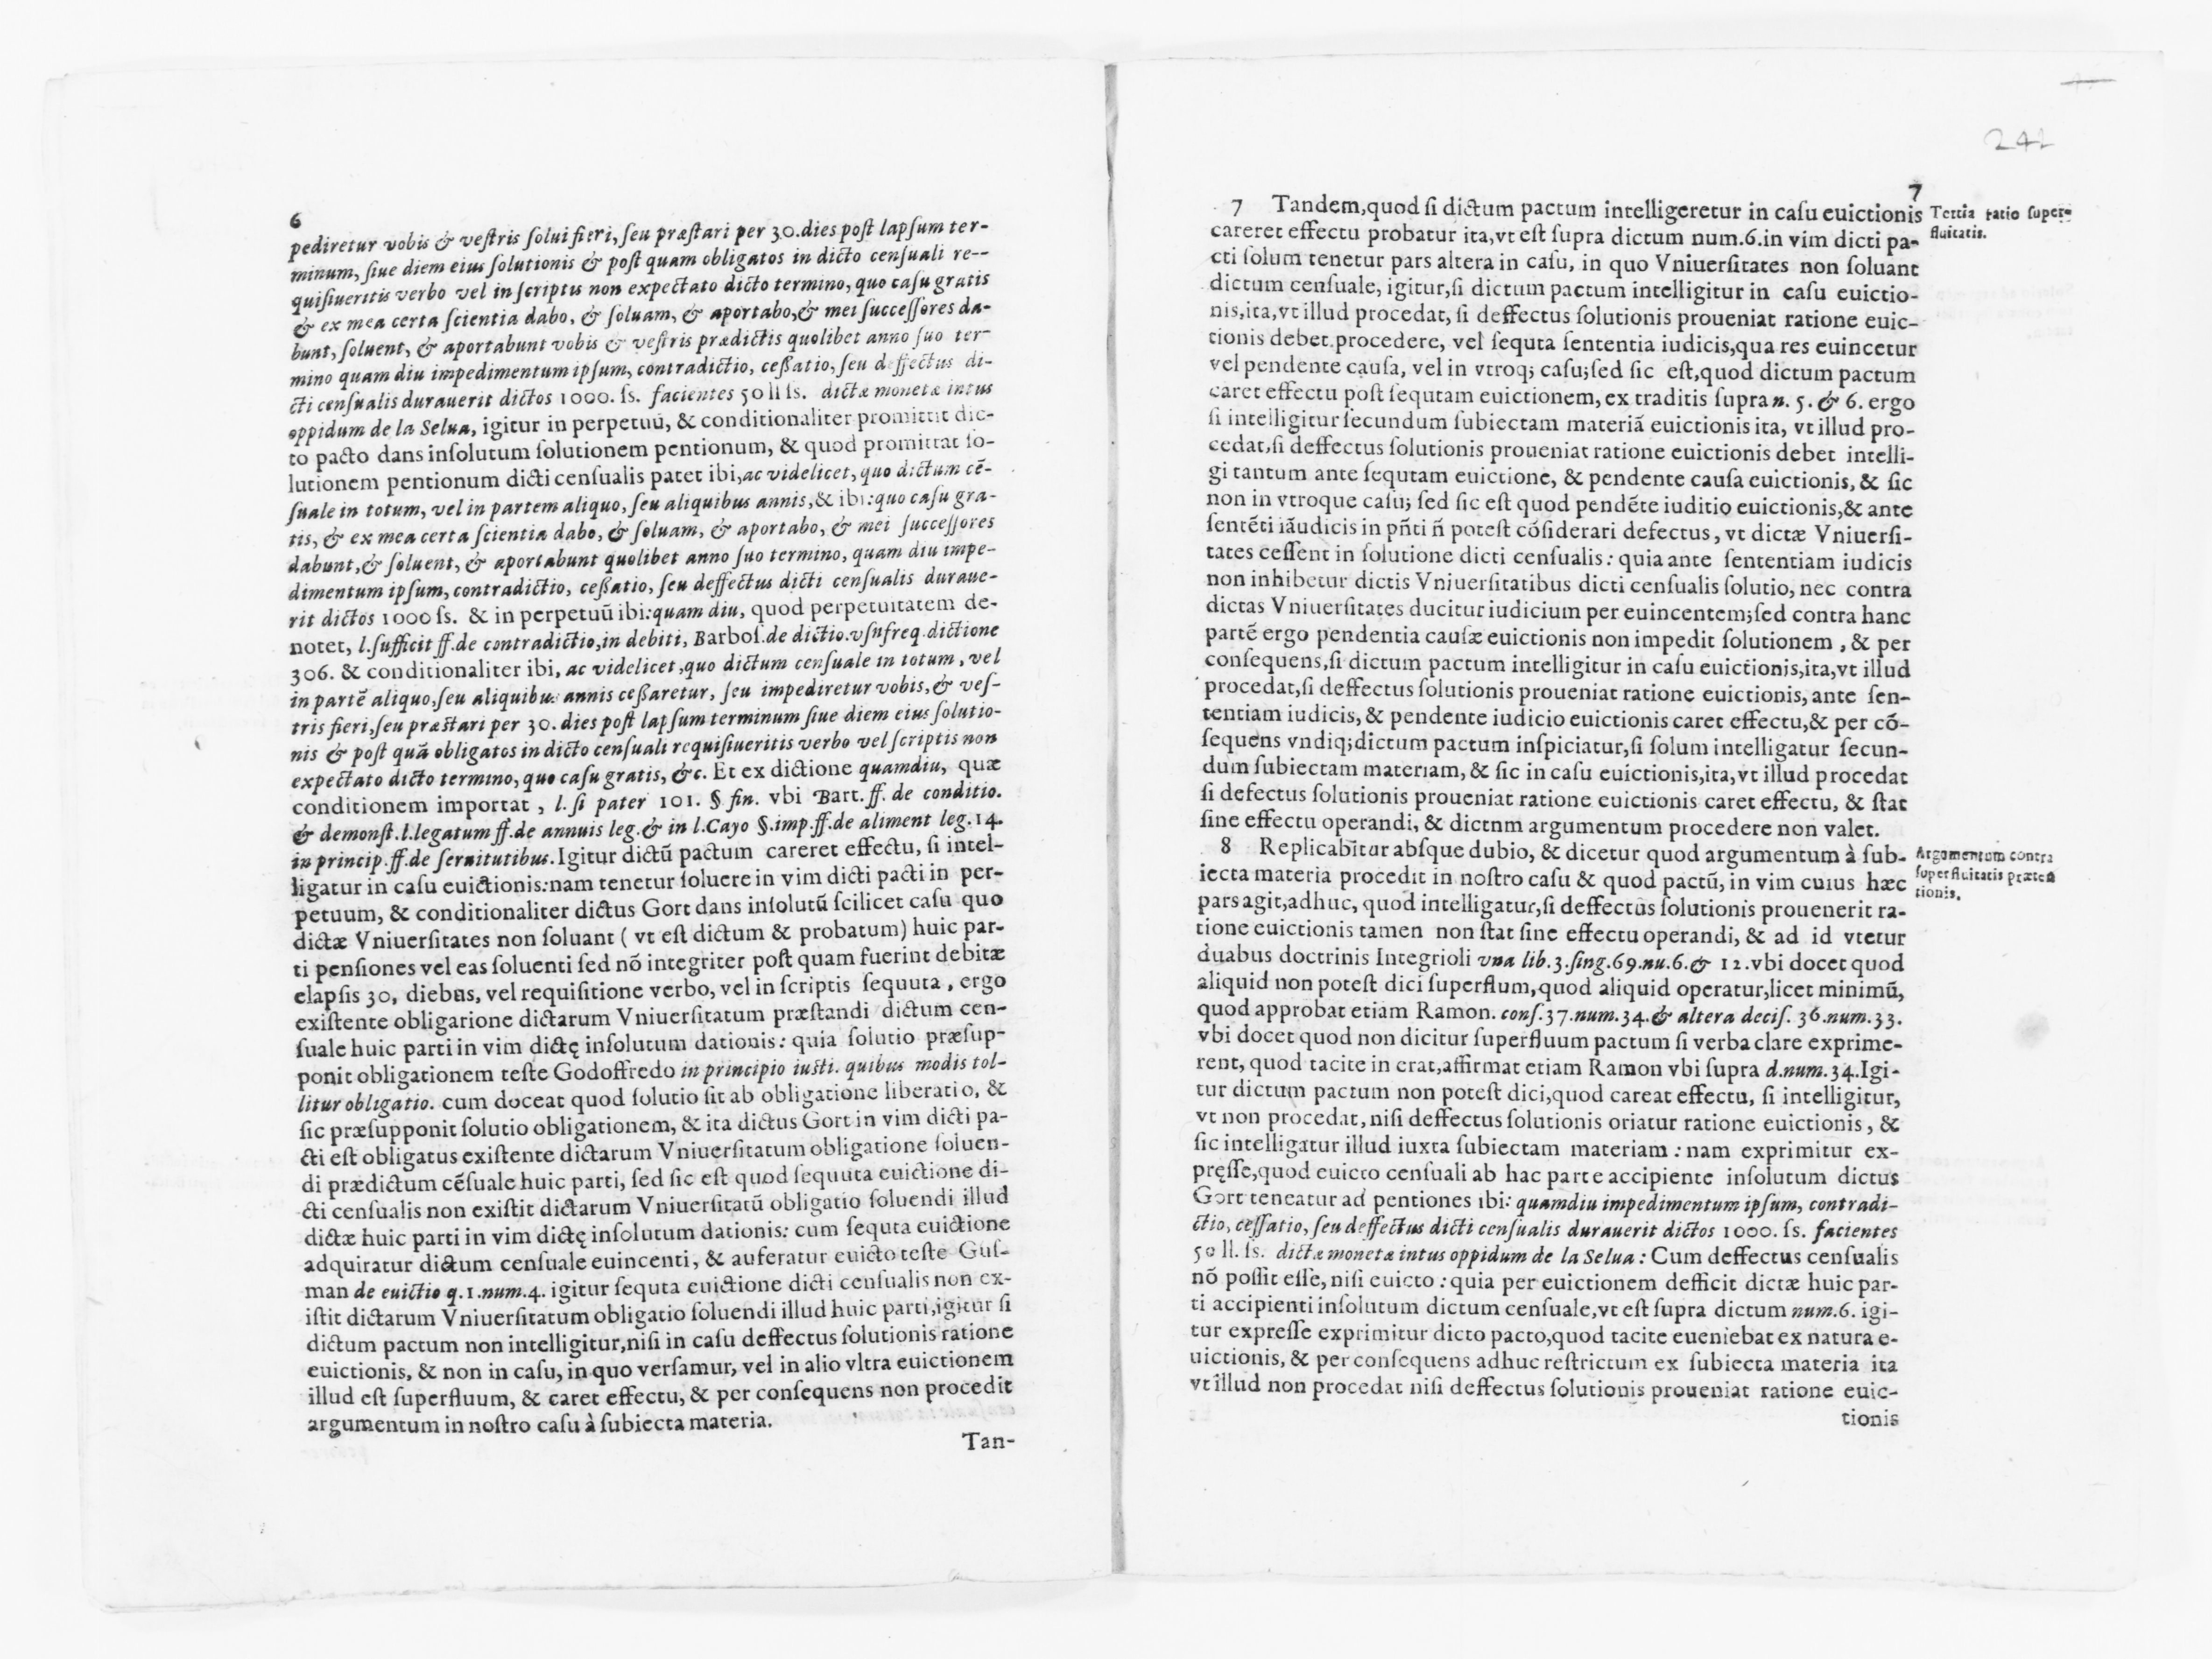 6
pediretur vobis & vestris solui fieri, seu præstari per 30. dies post lapsum ter-
minum, siue diem eius solutionis & post quam obligatos in dicto censuali re--
quisiueritis verbo vel in scriptus non expectato dicto termino, quo casu gratis
& ex mea certa scientia dabo, & soluam, & aportabo, & mei successores da-
bunt, soluent, & aportabunt vobis & vestris prædictis quolibet anno suo ter-
mino quam diu impedimentum ipsum, contradictio, cessatio, seu deffectus di-
cti censualis durauerit dictos 1000. ss. facientes 50 ll ss. dictæ monetæ intus
oppidum de la Selua, igitur in perpetuū, & conditionaliter promittit dic-
to pacto dans insolutum solutionem pentionum, & quod promittat so-
lutionem pentionum dicti censualis patet ibi, ac videlicet, quo dictum cē-
suale in totum, vel in partem aliquo, seu aliquibus annis, & ibi: quo casu gra-
tis, & ex mea certa scientia dabo, & soluam, & aportabo, & mei successores
dabunt, & soluent, & aportabunt quolibet anno suo termino, quam diu impe-
dimentum ipsum, contradictio, cessatio, seu deffectus dicti censualis duraue-
rit dictos 1000 ss. & in perpetuū ibi: quam diu, quod perpetuitatem de-
notet, l. sufficit ff. de contradictio, in debiti, Barbos. de dictio. vsufreq. dictione
306. & conditionaliter ibi, ac videlicet, quo dictum censuale in totum, vel
in partē aliquo, seu aliquibus annis cessaretur, seu impediretur vobis, & ves-
tris fieri, seu præstari per 30. dies post lapsum terminum siue diem eius solutio-
nis & post quā obligatos in dicto censuali requisiueritis verbo vel scriptis non
expectato dicto termino, quo casu gratis, &c. Et ex dictione quamdiu, quæ
conditionem importat, l. si pater 101. § fin. vbi Bart. ff. de conditio.
& demonst. l. legatum ff. de annuis leg. & in l. Cayo §. imp. ff. de aliment leg. 14.
in princip. ff. de seruitutibus. Igitur dictū pactum careret effectu, si intel-
ligatur in casu euictionis: nam tenetur soluere in vim dicti pacti in per-
petuum, & conditionaliter dictus Gort dans insolutū scilicet casu quo
dictæ Vniuersitates non soluant ( vt est dictum & probatum) huic par-
ti pensiones vel eas soluenti sed nō integriter post quam fuerint debitæ
elapsis 30, diebus, vel requisitione verbo, vel in scriptis sequuta, ergo
existente obligarione dictarum Vniuersitatum præstandi dictum cen-
suale huic parti in vim dictę insolutum dationis: quia solutio præsup-
ponit obligationem teste Godoffredo in principio iusti. quibus modis tol-
litur obligatio. cum doceat quod solutio sit ab obligatione liberatio, &
sic præsupponit solutio obligationem, & ita dictus Gort in vim dicti pa-
cti est obligatus existente dictarum Vniuersitatum obligatione soluen-
di prædictum cēsuale huic parti, sed sic est quod sequuta euictione di-
cti censualis non existit dictarum Vniuersitatū obligatio soluendi illud
dictæ huic parti in vim dictę insolutum dationis: cum sequta euictione
adquiratur dictum censuale euincenti, & auferatur euicto teste Gus-
man de euictio q. 1. num. 4. igitur sequta euictione dicti censualis non ex-
istit dictarum Vniuersitatum obligatio soluendi illud huic parti, igitur si
dictum pactum non intelligitur, nisi in casu deffectus solutionis ratione
euictionis, & non in casu, in quo versamur, vel in alio vltra euictionem
illud est superfluum, & caret effectu, & per consequens non procedit
argumentum in nostro casu à subiecta materia.
Tan-
242
7
7 Tandem, quod si dictum pactum intelligeretur in casu euictionis
Tertia ratio super-
fluitatis.
careret effectu probatur ita, vt est supra dictum num. 6. in vim dicti pa-
cti solum tenetur pars altera in casu, in quo Vniuersitates non soluant
dictum censuale, igitur, si dictum pactum intelligitur in casu euictio-
nis, ita, vt illud procedat, si deffectus solutionis proueniat ratione euic-
tionis debet procedere, vel sequta sententia iudicis, qua res euincetur
vel pendente causa, vel in vtroq; casu; sed sic est, quod dictum pactum
caret effectu post sequtam euictionem, ex traditis supra n. 5. & 6. ergo
si intelligitur secundum subiectam materiā euictionis ita, vt illud pro-
cedat, si deffectus solutionis proueniat ratione euictionis debet intelli-
gi tantum ante sequtam euictione, & pendente causa euictionis, & sic
non in vtroque casu; sed sic est quod pendēte iuditio euictionis, & ante
sentēti iāudicis in pñti ñ potest cósiderari defectus, vt dictæ Vniuersi-
tates cessent in solutione dicti censualis: quia ante sententiam iudicis
non inhibetur dictis Vniuersitatibus dicti censualis solutio, nec contra
dictas Vniuersitates ducitur iudicium per euincentem; sed contra hanc
partē ergo pendentia causæ euictionis non impedit solutionem, & per
consequens, si dictum pactum intelligitur in casu euictionis, ita, vt illud
procedat, si deffectus solutionis proueniat ratione euictionis, ante sen-
tentiam iudicis, & pendente iudicio euictionis caret effectu, & per cō-
sequens vndiq; dictum pactum inspiciatur, si solum intelligatur secun-
dum subiectam materiam, & sic in casu euictionis, ita, vt illud procedat
si defectus solutionis proueniat ratione euictionis caret effectu, & stat
sine effectu operandi, & dictnm argumentum procedere non valet.
8 Replicabitur absque dubio, & dicetur quod argumentum à sub-
Argumentum contra
superfluitatis præten
tionis.
iecta materia procedit in nostro casu & quod pactū, in vim cuius hæc
pars agit, adhuc, quod intelligatur, si deffectus solutionis prouenerit ra-
tione euictionis tamen non stat sine effectu operandi, & ad id vtetur
duabus doctrinis Integrioli vna lib. 3. sing. 69. nu. 6. & 12. vbi docet quod
aliquid non potest dici superflum, quod aliquid operatur, licet minimū,
quod approbat etiam Ramon. cons. 37. num. 34. & altera decis. 36. num. 33.
vbi docet quod non dicitur superfluum pactum si verba clare exprime-
rent, quod tacite in erat, affirmat etiam Ramon vbi supra d. num. 34. Igi-
tur dictum pactum non potest dici, quod careat effectu, si intelligitur,
vt non procedat, nisi deffectus solutionis oriatur ratione euictionis, &
sic intelligatur illud iuxta subiectam materiam: nam exprimitur ex-
pręsse, quod euicto censuali ab hac parte accipiente insolutum dictus
Gort teneatur ad pentiones ibi: quamdiu impedimentum ipsum, contradi-
ctio, cessatio, seu deffectus dicti censualis durauerit dictos 1000. ss. facientes
50 ll. ss. dictæ monetæ intus oppidum de la Selua: Cum deffectus censualis
nō possit esse, nisi euicto: quia per euictionem defficit dictæ huic par-
ti accipienti insolutum dictum censuale, vt est supra dictum num. 6. igi-
tur expresse exprimitur dicto pacto, quod tacite eueniebat ex natura e-
uictionis, & per consequens adhuc restrictum ex subiecta materia ita
vt illud non procedat nisi deffectus solutionis proueniat ratione euic-
tionis